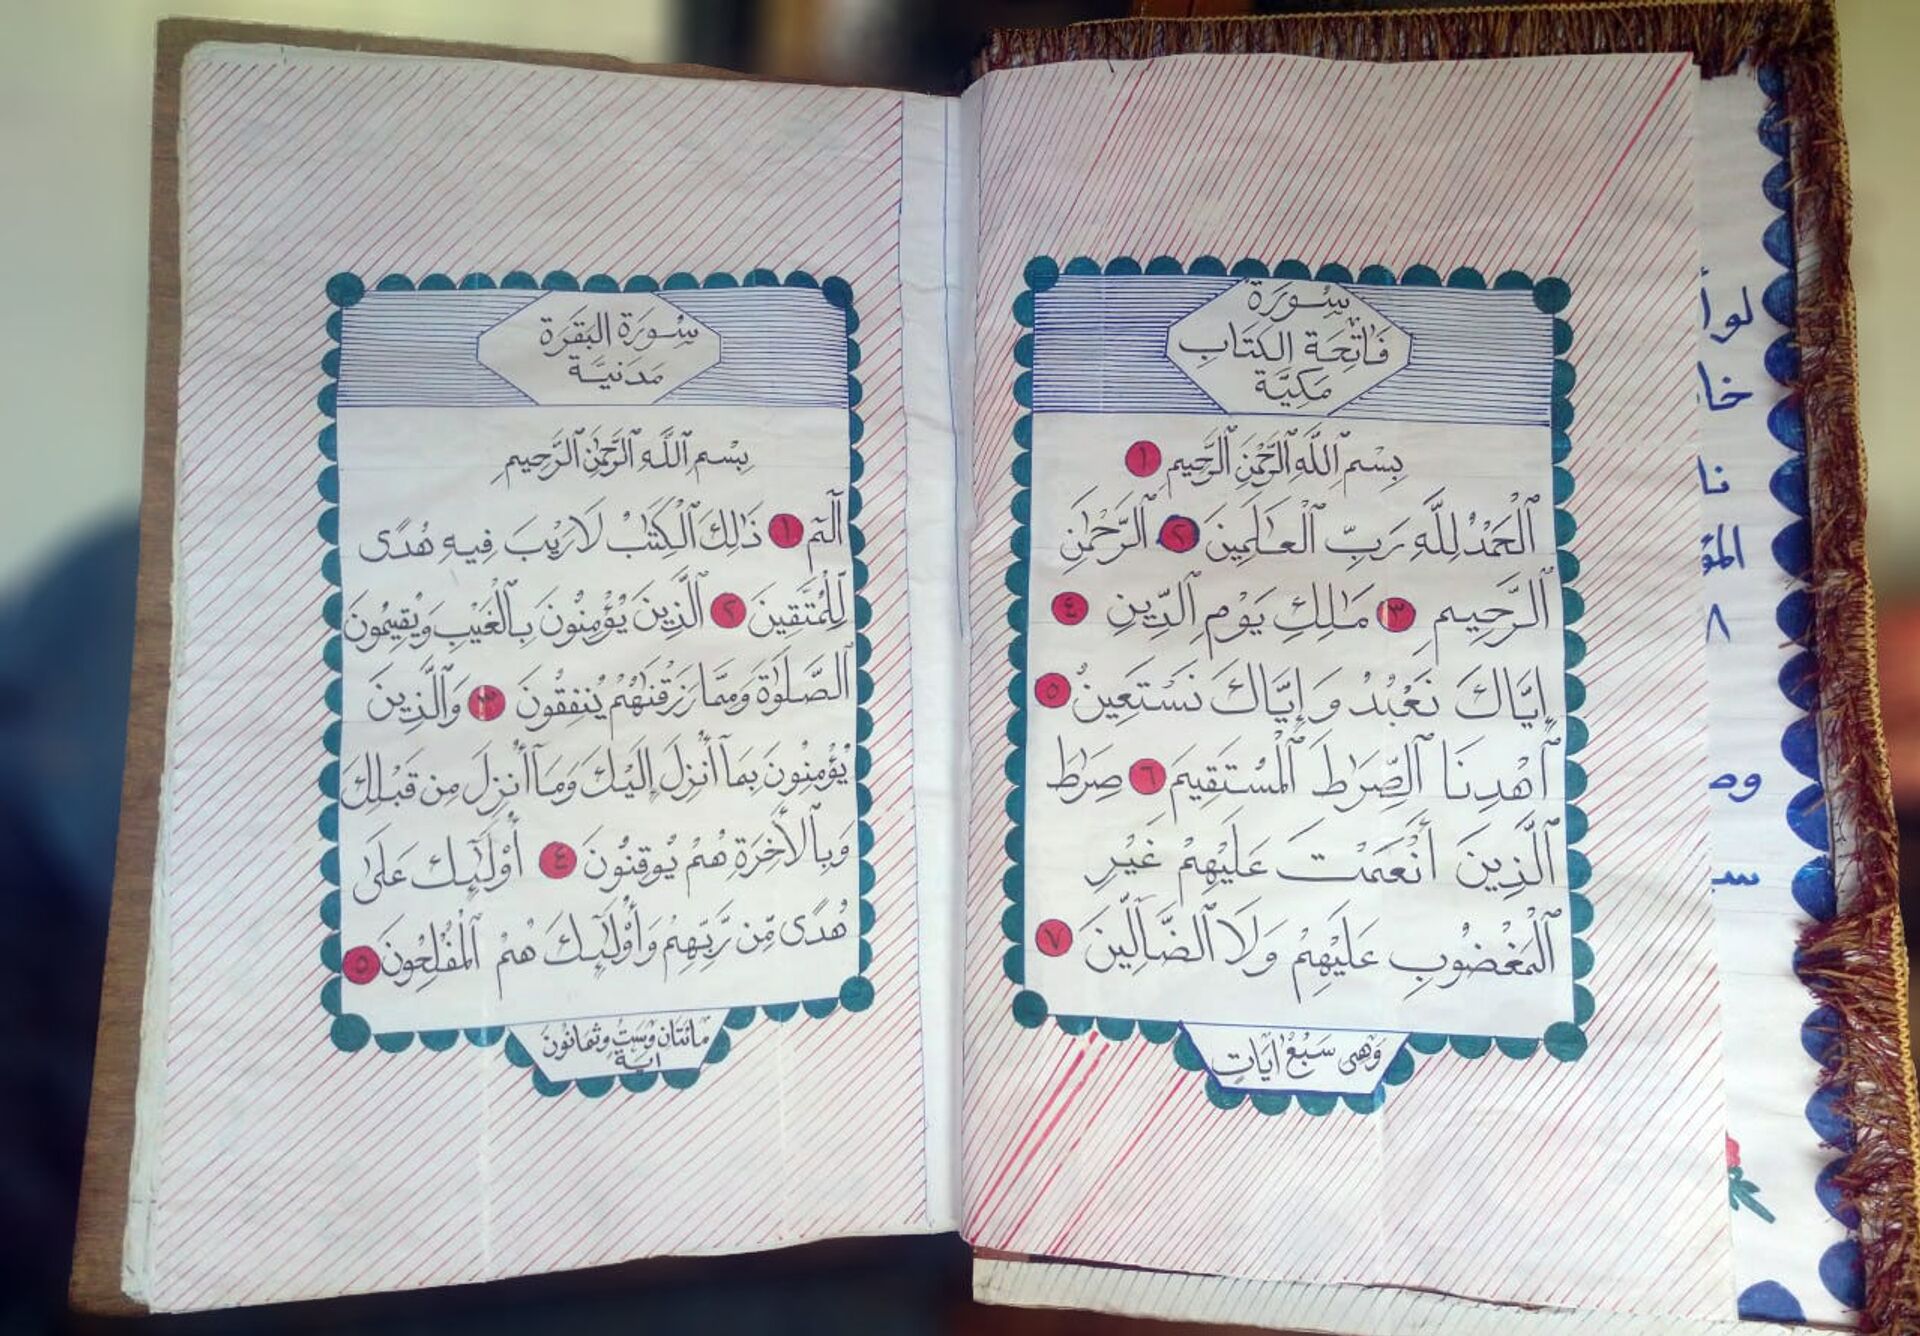 سُورَة
فَاتِحَة الكِتَاب
مَكِيَّة
بِسْمِ ٱللَّهِ ٱلرَّحْمَٰنِ ٱلرَّحِيمِ ١
ٱلْحَمْدُ لِلَّهِ رَبِّ ٱلْعَـٰلَمِينَ ٢ ٱلرَّحْمَٰنِ
ٱلرَّحِيمِ ٣ مَـٰلِكِ يَوْمِ ٱلدِّينِ ٤
إِيَّاكَ نَعْبُدُ وَإِيَّاكَ نَسْتَعِينُ ٥
ٱهْدِنَا ٱلصِّرَٰطَ ٱلْمُسْتَقِيمَ ٦ صِرَٰطَ
ٱلَّذِينَ أَنْعَمْتَ عَلَيْهِمْ غَيْرِ
ٱلْمَغْضُوبِ عَلَيْهِمْ وَلَا ٱلضَّآلِّينَ ٧
وَهِىَ سَبْعُ ايَاتٍ
سُورَة البَقَرَة
مَدَنيَّة
بِسْمِ ٱللَّهِ ٱلرَّحْمَٰنِ ٱلرَّحِيمِ
الٓمٓ ١ ذَٰلِكَ ٱلْكِتَٰبُ لَا رَيْبَ فِيهِ هُدًى
لِّلْمُتَّقِينَ ٢ ٱلَّذِينَ يُؤْمِنُونَ بِٱلْغَيْبِ وَيُقِيمُونَ
ٱلصَّلَوٰةَ وَمِمَّا رَزَقْنَٰهُمْ يُنفِقُونَ ٣ وَٱلَّذِينَ
يُؤْمِنُونَ بِمَآ أُنزِلَ إِلَيْكَ وَمَآ أُنزِلَ مِن قَبْلِكَ
وَبِٱلْأَخِرَةِ هُمْ يُوقِنُونَ ٤ أُوْلَٰٓئِكَ عَلَىٰ
هُدًى مِّن رَّبِّهِمْ وَأُوْلَٰٓئِكَ هُمُ ٱلْمُفْلِحُونَ ٥
مائتان وست وثمانون
اية